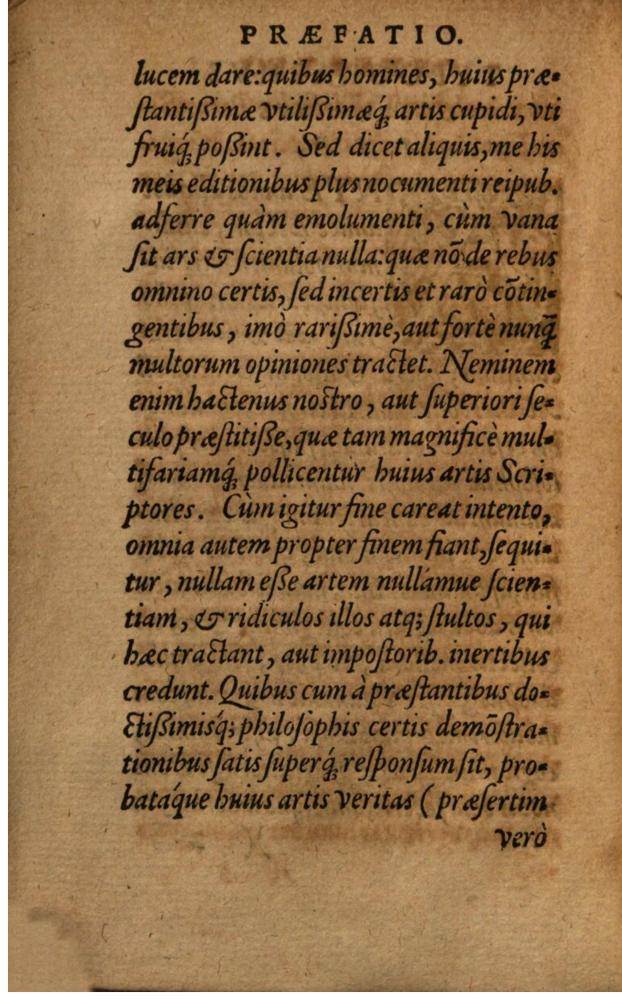 PRÆFATIO.
lucem dare:quibus homines, huius præ-
ſtantißimæ vtilißimæq́; artis cupidi, vti
fruiq́; poßint. Sed dicet aliquis, me his
meis editionibus plus nocumenti reipub.
adferre quàm emolumenti, cùm vana
ſit ars & ſcientia nulla:quæ nõ de rebus
omnino certis, ſed incertis et rarò cõtin-
gentibus, imò rarißimè, aut fortè nunq̃
multorum opiniones tractet. Neminem
enim hactenus noſtro, aut ſuperiori ſe-
culo præſtitiße, quæ tam magnificè mul-
tifariamq́; pollicentur huius artis Scri-
ptores. Cùm igitur fine careat intento,
omnia autem propter finem fiant, ſequi-
tur, nullam eße artem nullamue ſcien-
tiam, & ridiculos illos atq; ſtultos, qui
hæc tractant, aut impoſtorib. inertibus
credunt. Quibus cum à præſtantibus do-
ctißimisq́; philoſophis certis demõſtra-
tionibus ſatis ſuperq́; reſponſum ſit, pro-
bataq́ue huius artis veritas (præſertim
verò